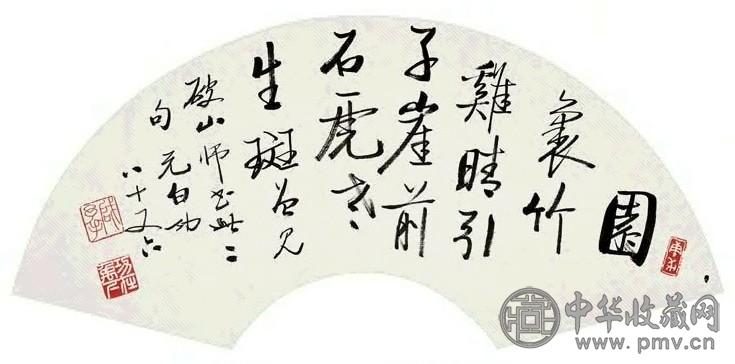 園
裏竹
雞晴引
子崖前
石虎老
生斑 曾见
破山师书此二
句 元白功
八十又六
中华收藏网
www.pmv.cn